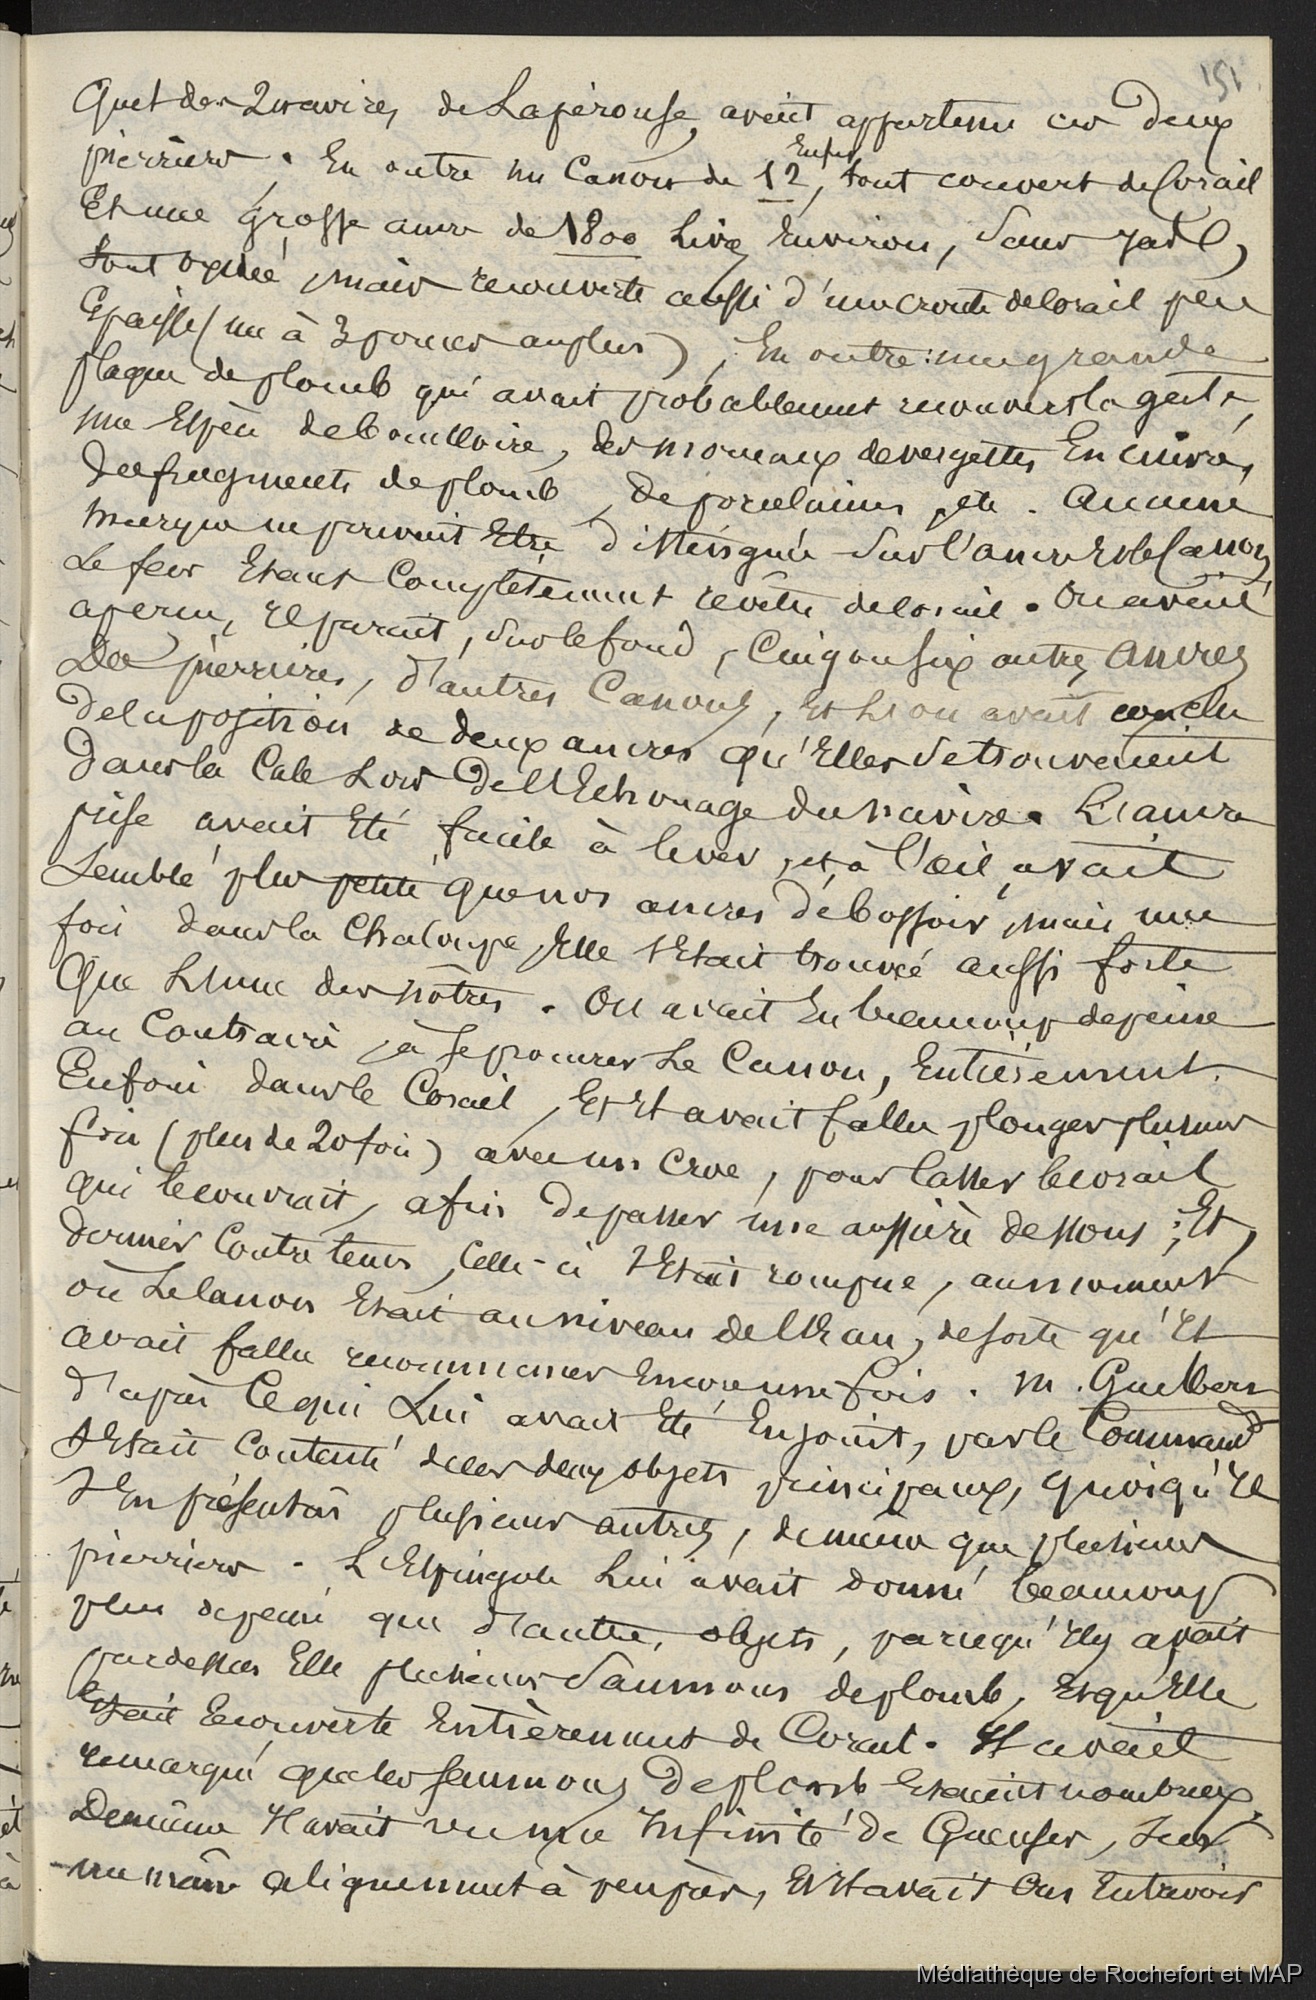 151
Quel des 2 navires de Lapérouse avait appartenu ces deux
pierriers. En outre un Canon de 12, Enfin tout couvert de Corail
Et une grosse ancre de 1800 livres Environ, sans jas,
tout oxydé, mais recouverte aussi d'une croute de Corail peu
Epaisse (un à 3 pouces au plus), En outre : une grande
plaque de plomb qui avait probablement recouvert la
une Espèce de bouilloire, des morceaux de vergettes En cuivre,
Des fragments de plomb, de porcelaines, etc. Aucune
marque ne pouvait Etre distinguée sur l'ancre et le Canon,
Le fer Etant Complètement revêtu de Corail. On avait
aperçu, Il parait, sur le fond, Cinq ou six autres Ancres
Des pierriers, d'autres Canons, Et L'on avait conclu
De la position de deux ancres qu'Elles se trouvaient
Dans la Cale Lors De l'Echouage du navire. L'ancre
prise avait Eté facile à lever, et, à l'œil, avait
Semblé plus petite que nos ancres de bossoir, mais une
fois dans la Chaloupe, Elle s'Etait trouvée aussi forte
Que L'une des nôtres. On avait Eu beaucoup de peine
au Contraire, à se procurer Le Canon, Entièrement
Enfoui dans le Corail, Et Il avait fallu plonger plusieurs
fois (plus de 20 fois) avec un croc, pour casser le corail
qui le couvrait, afin de passer une aussière dessous ; Et,
dernier Contretems, Celle-ci s'Etait rompue, au moment
où Le Canon Etait au niveau de l'Eau, de sorte qu'Il
avait fallu recommencer Encore une fois. M. Guilbert
d'après Ce qui Lui avait Eté Enjoint, par le Command.t
s'Etait Contenté de ces deux objets principaux, quoiqu'Il
s'En présentât plusieurs autres, de même que plusieurs
pierriers. L'Espingole Lui avait donné beaucoup
plus de peine que d'autres objets, parcequ'Il y avait
par dessus Elle plusieurs Saumons de plomb, Et qu'Elle
Etait Recouverte Entièrement de Corail. Il avait
remarqué que les saumons De plomb Etaient nombreux.
De même Il avait vu une Infinité de Gueuses, sur
un même alignement à peu près, Et Il avait Cru Entrevoir
Médiathèque de Rochefort et MAP